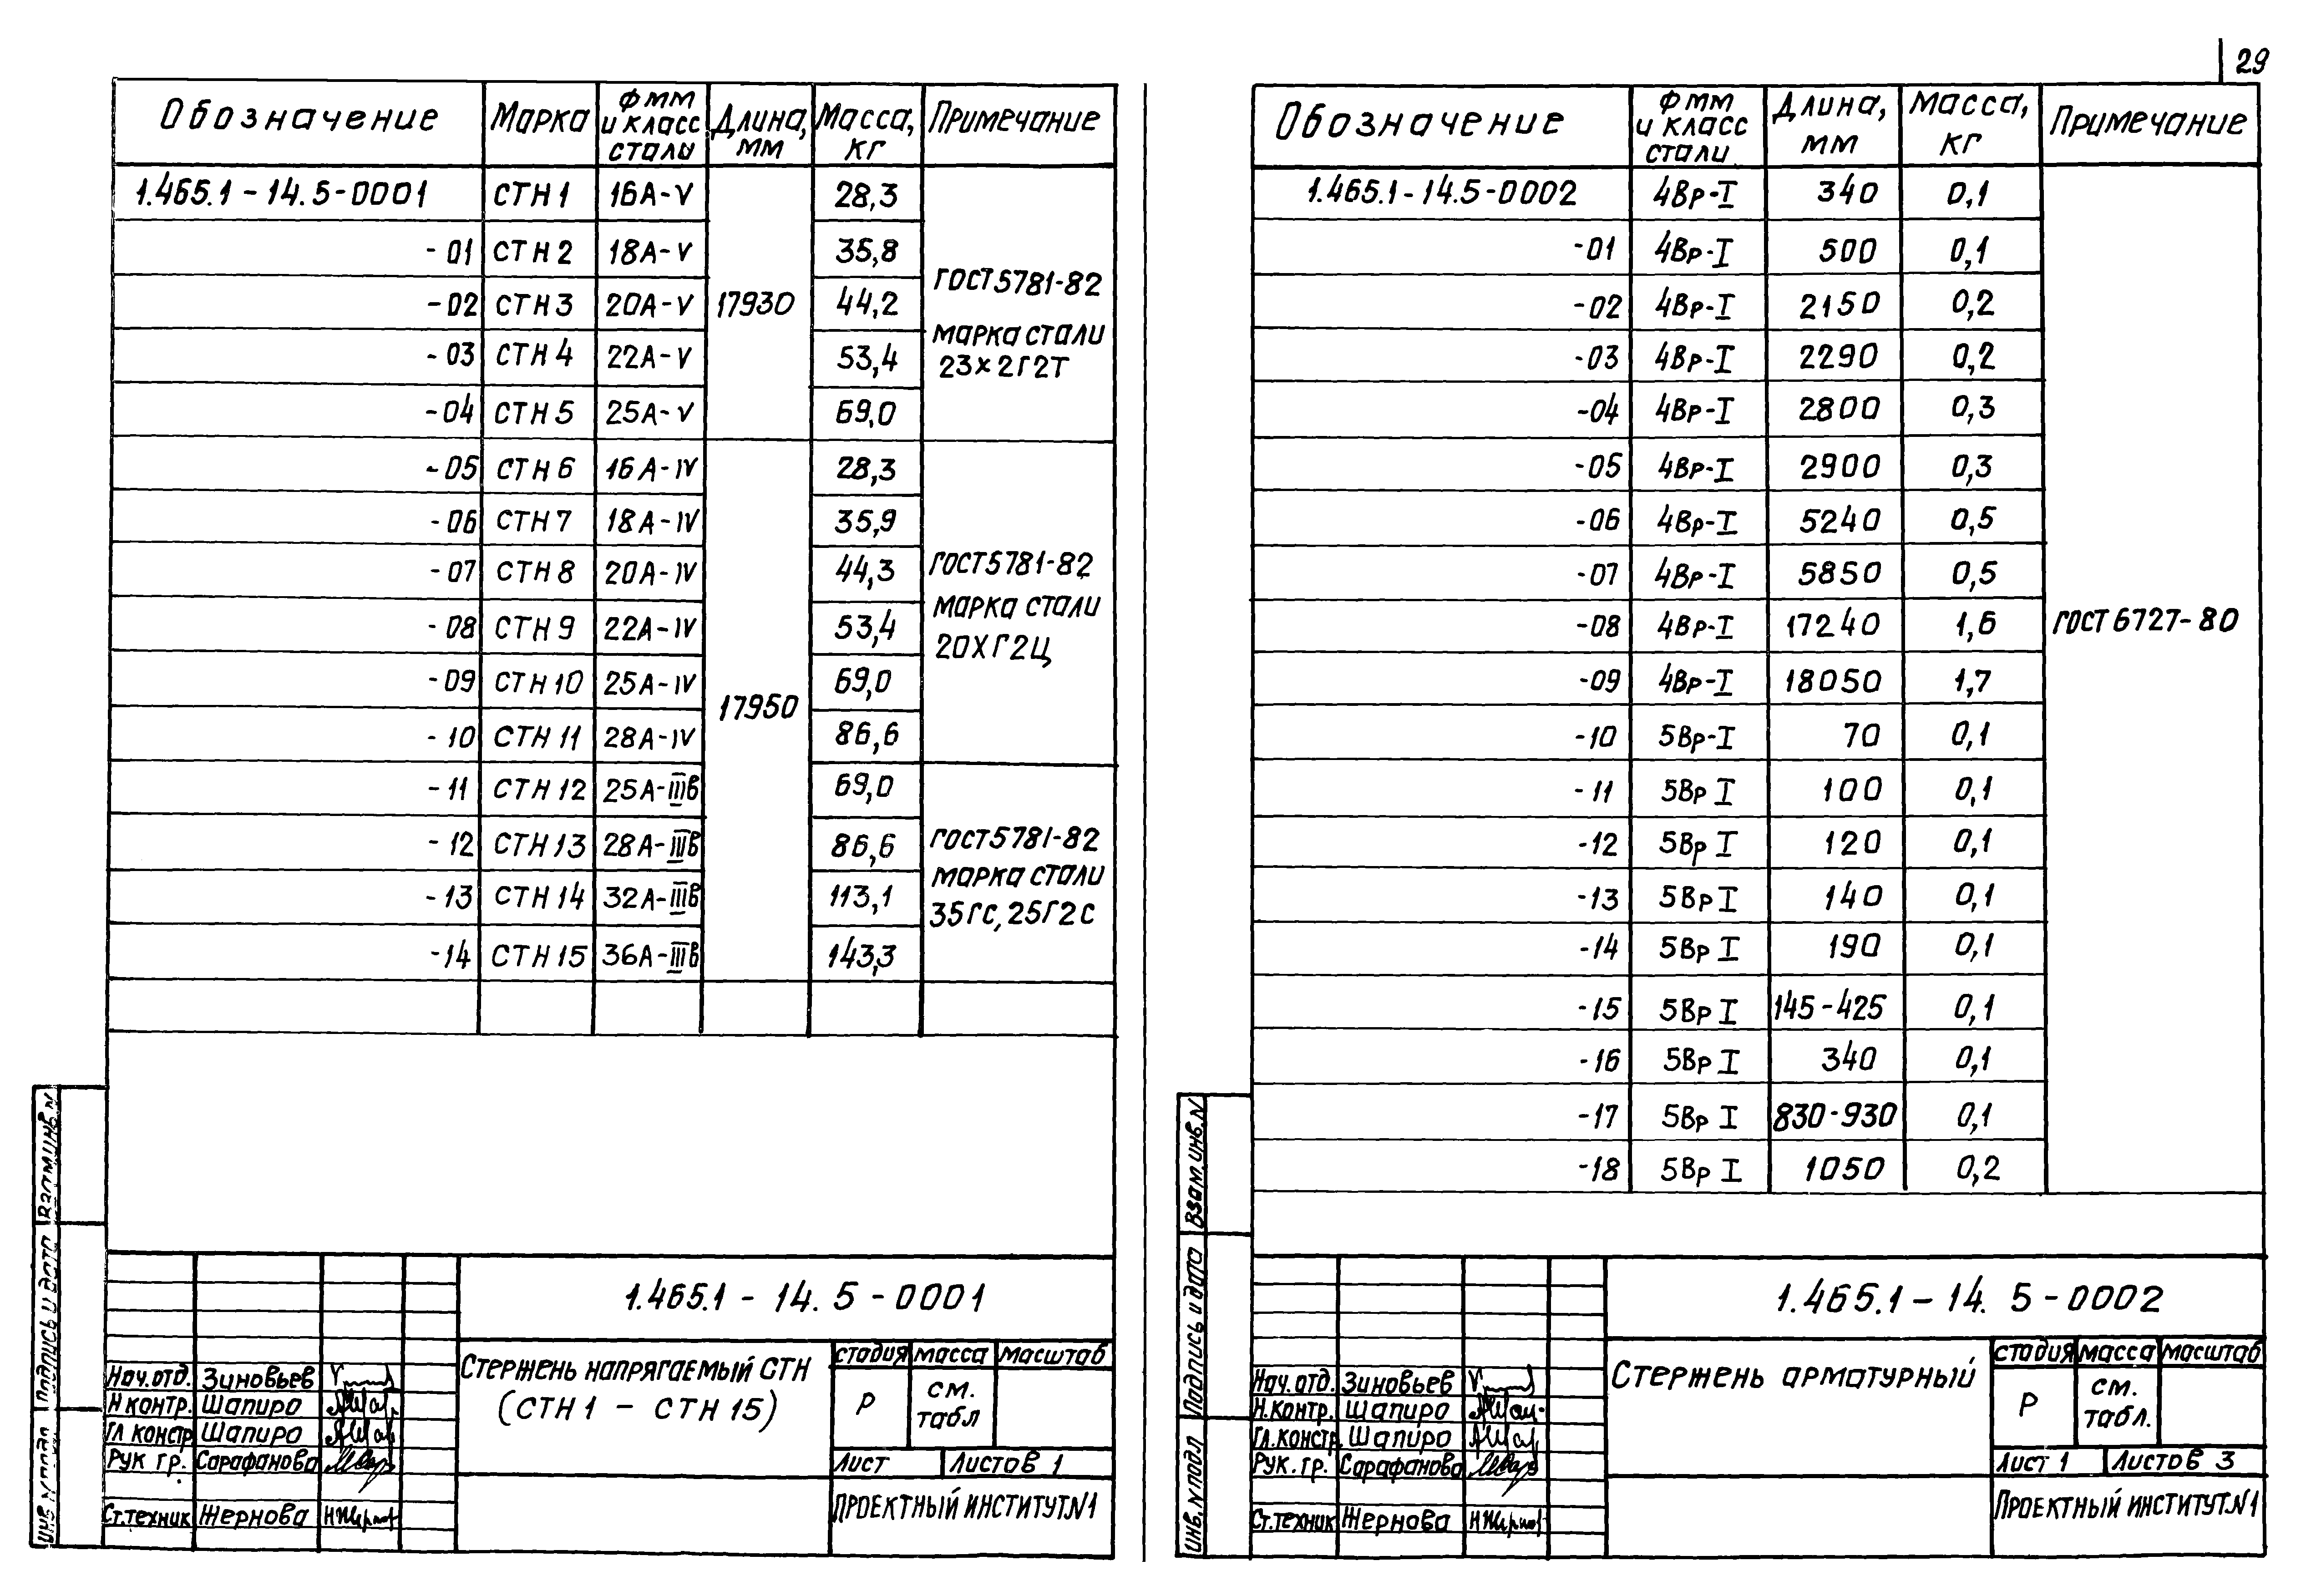 29
Обозначение Марка Фмм и класс стали Длина, мм Масса, кг Примечание
1.465.1-14.5-0001 СТН1 16А-V 28,3
-01 СТН2 18А-V 35,8
-02 СТН3 20А-V 17930 44,2
-03 СТН4 22А-V 53,4
-04 СТН5 25А-V 69,0
ГОСТ5781-82
марка стали
23х2Г2Т
-05 СТН6 16А-IV 28,3
-06 СТН7 18А-IV 35,9
-07 СТН8 20А-IV 44,3
-08 СТН9 22А-IV 53,4
-09 СТН10 25А-IV 69,0
17950
-10 СТН11 28А-IV 86,6
ГОСТ5781-82
марка стали
20ХГ2Ц
-11 СТН12 25А-IIIв 69,0
-12 СТН13 28А-IIIв 86,6
-13 СТН14 32А-IIIв 113,1
-14 СТН15 36А-IIIв 143,3
ГОСТ5781-82
марка стали
35ГС, 25Г2С
Взам.инв.N
Подпись и дата
Инв.Nподл
1.465.1-14.5-0001
Стержень напрягаемый СТН
(СТН1 - СТН15)
стадия масса масштаб
Р см. табл
Лист Листов 1
Проектный институт N1
Нач.отд. Зиновьев
Н контр. Шапиро
Гл констр Шапиро
Рук гр. Сарафанова
Ст.техник Жернова
Обозначение Фмм и класс стали Длина, мм Масса, кг Примечание
1.465.1-14.5-0002 4Вр-I 340 0,1
-01 4Вр-I 500 0,1
-02 4Вр-I 2150 0,2
-03 4Вр-I 2290 0,2
-04 4Вр-I 2800 0,3
-05 4Вр-I 2900 0,3
-06 4Вр-I 5240 0,5
-07 4Вр-I 5850 0,5
-08 4Вр-I 17240 1,6 ГОСТ6727-80
-09 4Вр-I 18050 1,7
-10 5Вр-I 70 0,1
-11 5Вр I 100 0,1
-12 5Вр I 120 0,1
-13 5Вр I 140 0,1
-14 5Вр I 190 0,1
-15 5Вр I 145-425 0,1
-16 5Вр I 340 0,1
-17 5Вр I 830-930 0,1
-18 5Вр I 1050 0,2
Взам.инв.N
Подпись и дата
Инв.Nподл
1.465.1-14.5-0002
Стержень арматурный
стадия масса масштаб
Р см. табл.
Лист 1 Листов 3
Проектный институт N1
Нач.отд. Зиновьев
Н.контр. Шапиро
Гл.констр. Шапиро
Рук.гр. Сарафанова
Ст.техник Жернова